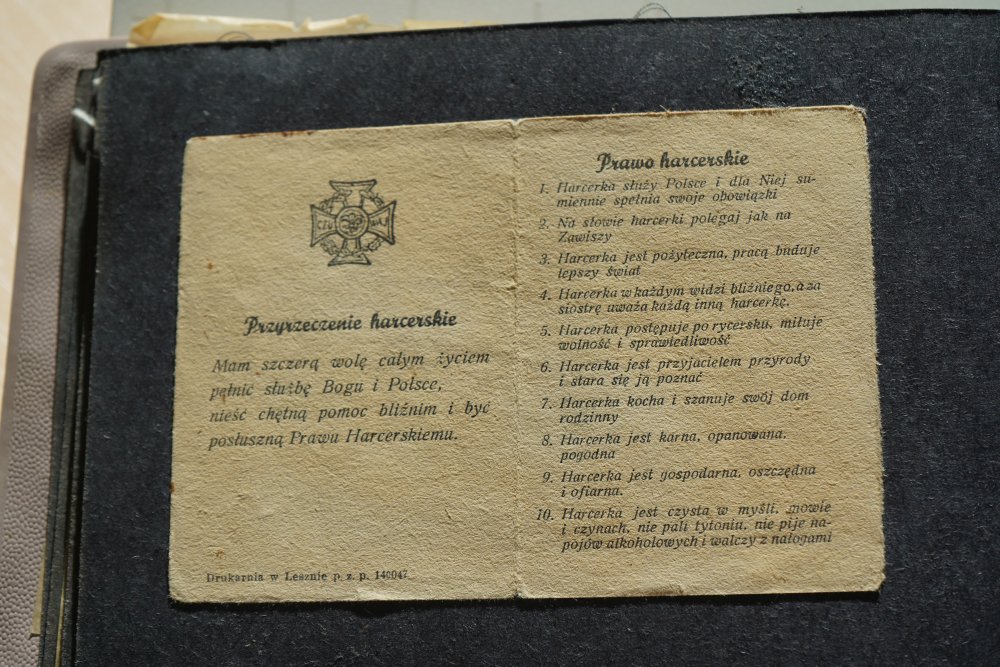 Przyrzeczenie harcerskie
Mam szczerą wolę całym życiem
pełnić służbę Bogu i Polsce,
nieść chętną pomoc bliźnim i być
posłuszną Prawu Harcerskiemu.
Drukarnia w Lesznie p. z. p. 140047
Prawo harcerskie
1. Harcerka służy Polsce i dla Niej su-
miennie spełnia swoje obowiązki
2. Na słowie harcerki polegaj jak na
Zawiszy
3. Harcerka jest pożyteczna, pracą buduje
lepszy świat
4. Harcerka w każdym widzi bliźniego, a za
siostrę uważa każdą inną harcerkę.
5. Harcerka postępuje po rycersku, miłuje
wolność i sprawiedliwość
6. Harcerka jest przyjacielem przyrody
i stara się ją poznać
7. Harcerka kocha i szanuje swój dom
rodzinny
8. Harcerka jest karna, opanowana,
pogodna
9. Harcerka jest gospodarna, oszczędna
i ofiarna.
10. Harcerka jest czysta w myśli, mowie
i czynach, nie pali tytoniu, nie pije na-
pojów alkoholowych i walczy z nałogami